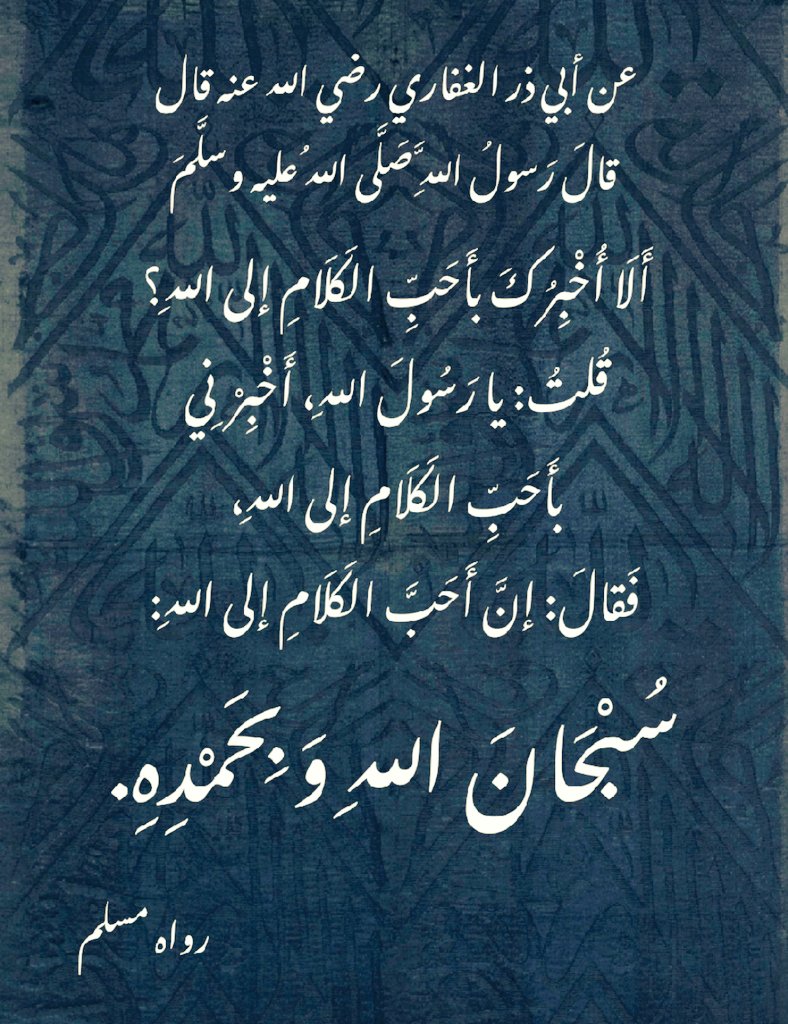 عن أبي ذر الغفاري رضي الله عنه قال
قالَ رَسولُ اللهِ صَلَّى اللهُ عليه وسلَّمَ
أَلَا أُخْبِرُكَ بأَحَبِّ الكَلَامِ إلى اللهِ؟
قُلتُ: يا رَسُولَ اللهِ، أَخْبِرْنِي
بأَحَبِّ الكَلَامِ إلى اللهِ،
فَقالَ: إنَّ أَحَبَّ الكَلَامِ إلى اللهِ:
سُبْحَانَ اللهِ وَبِحَمْدِهِ.
رواه مسلم